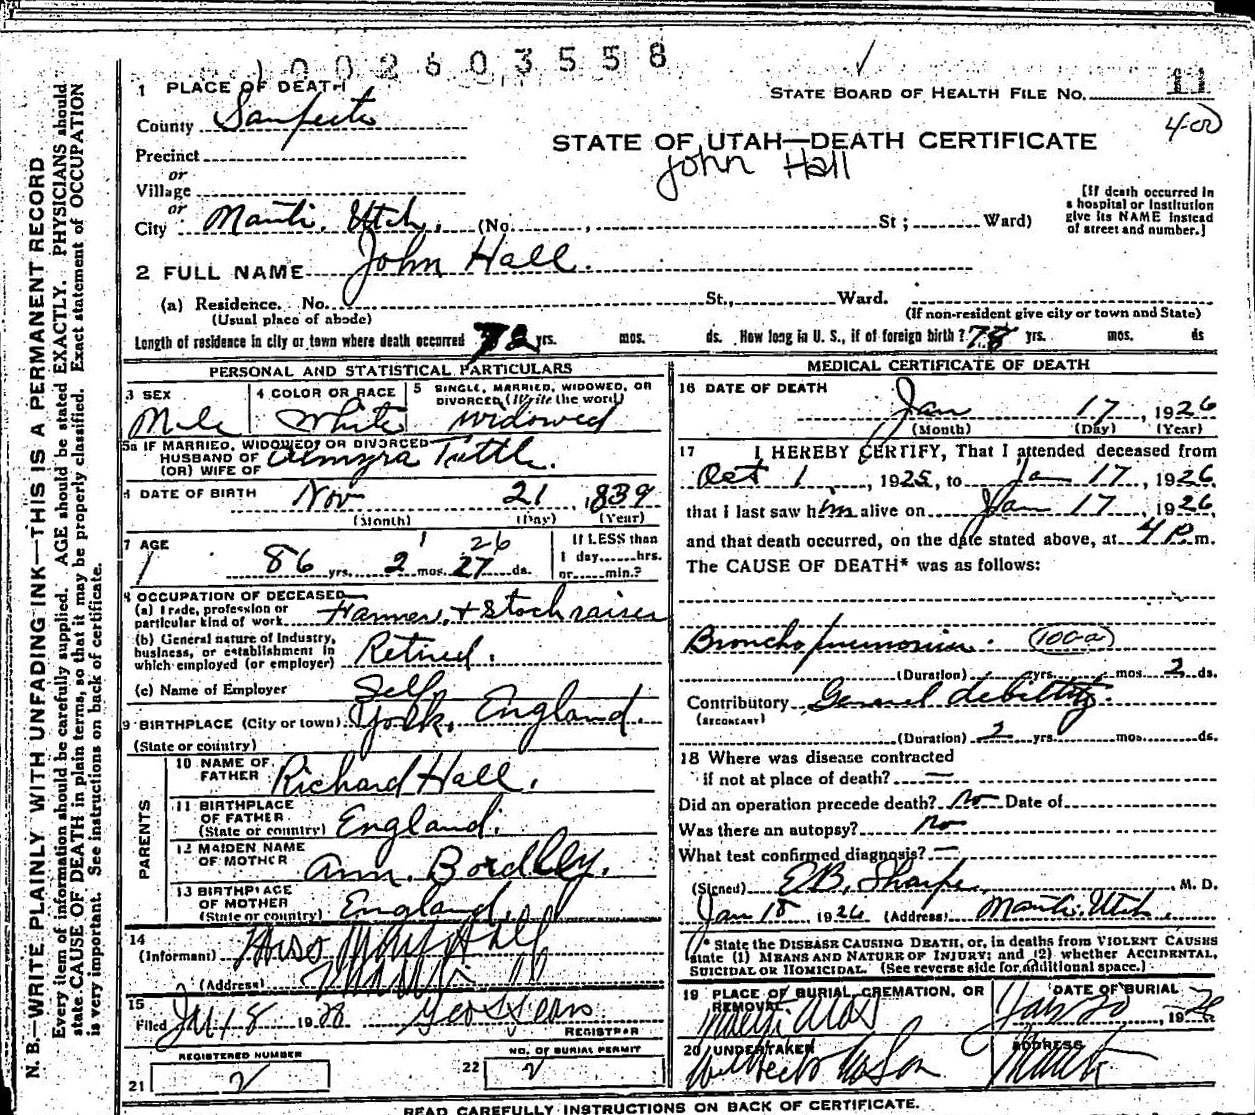 1002603558
1 PLACE OF DEATH
STATE BOARD OF HEALTH FILE NO. 11
County Sanpete
4-00
STATE OF UTAH—DEATH CERTIFICATE
John Hall
Precinct
or
Village
or
City Manti, Utah. (No. , St ; Ward)
[If death occurred in
a hospital or institution
give its NAME instead
of street and number.]
2 FULL NAME John Hall.
(a) Residence. No. St., Ward.
(Usual place of abode)
(If non-resident give city or town and State)
Length of residence in city or town where death occurred 72 yrs. mos. ds. How long in U. S., if of foreign birth? 78 yrs. mos. ds
PERSONAL AND STATISTICAL PARTICULARS
3 SEX
Male
4 COLOR OR RACE
White
5 SINGLE, MARRIED, WIDOWED, OR
DIVORCED (Write the word)
widowed
5a IF MARRIED, WIDOWED, OR DIVORCED
HUSBAND OF
(OR) WIFE OF
Almyra Tuttle.
6 DATE OF BIRTH Nov 21, 1839
(Month) (Day) (Year)
7 AGE
1 26
86 yrs. 2 mos. 27 ds.
If LESS than
1 day......hrs.
or......min.?
8 OCCUPATION OF DECEASED
(a) Trade, profession or
particular kind of work Farmer, + Stock raiser
(b) General nature of Industry,
business, or establishment in
which employed (or employer) Retired.
(c) Name of Employer Self
9 BIRTHPLACE (City or town) York, England.
(State or country)
PARENTS
10 NAME OF
FATHER Richard Hall.
11 BIRTHPLACE
OF FATHER
(State or country) England.
12 MAIDEN NAME
OF MOTHER Ann.
13 BIRTHPLACE
OF MOTHER
(State or country) England.
14
(Informant) Hall
(Address) Manti
15
Filed 18 19
REGISTRAR
REGISTERED NUMBER
21 2
NO. OF BURIAL PERMIT
22 2
MEDICAL CERTIFICATE OF DEATH
16 DATE OF DEATH
Jan 17, 1926
(Month) (Day) (Year)
17 I HEREBY CERTIFY, That I attended deceased from
Oct 1, 1925, to Jan 17, 1926
that I last saw him alive on Jan 17, 1926,
and that death occurred, on the date stated above, at 4 P. m.
The CAUSE OF DEATH* was as follows:
Broncho pneumonia. (100a)
(Duration) yrs. mos. 2 ds.
Contributory General debility.
(SECONDARY)
(Duration) 2 yrs. mos. ds.
18 Where was disease contracted
if not at place of death? —
Did an operation precede death? no Date of
Was there an autopsy? no
What test confirmed diagnosis? —
(Signed) E.B. Sharpe, M. D.
Jan 18 1926 (Address) Manti, Utah.
* State the DISEASE CAUSING DEATH, or, in deaths from VIOLENT CAUSES
state (1) MEANS AND NATURE OF INJURY; and (2) whether ACCIDENTAL,
SUICIDAL OR HOMICIDAL. (See reverse side for additional space.)
19 PLACE OF BURIAL, CREMATION, OR
REMOVAL
Manti
DATE OF BURIAL
Jan 20, 19
20 UNDERTAKER
ADDRESS
Manti
READ CAREFULLY INSTRUCTIONS ON BACK OF CERTIFICATE.
N. B.—WRITE PLAINLY WITH UNFADING INK—THIS IS A PERMANENT RECORD
Every item of information should be carefully supplied. AGE should be stated EXACTLY. PHYSICIANS should
state CAUSE OF DEATH in plain terms, so that it may be properly classified. Exact statement of OCCUPATION
is very important. See instructions on back of certificate.